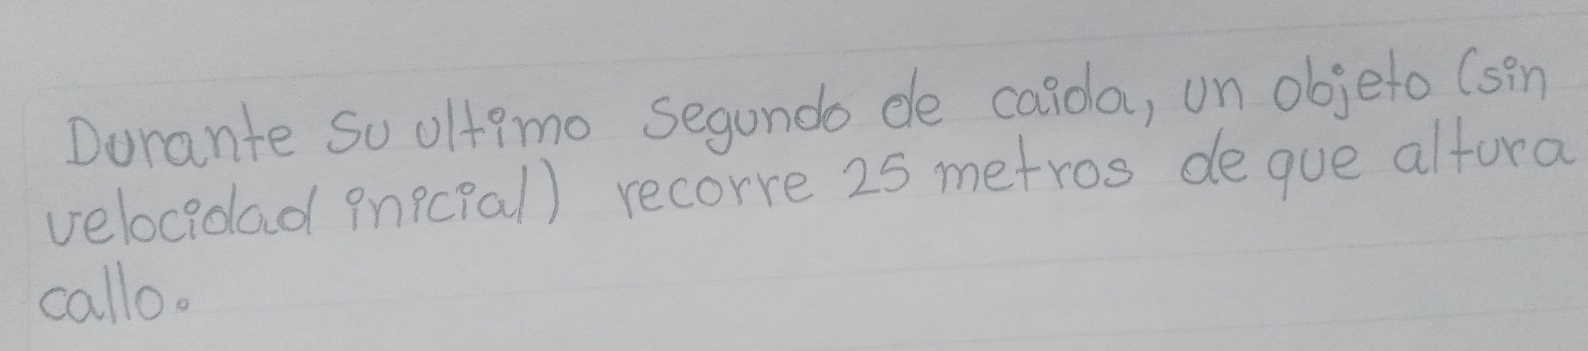 Durante su ultimo segundo de caida, un objeto (sin
velocidad inicial) recorre 25 metros de que altura
callo.